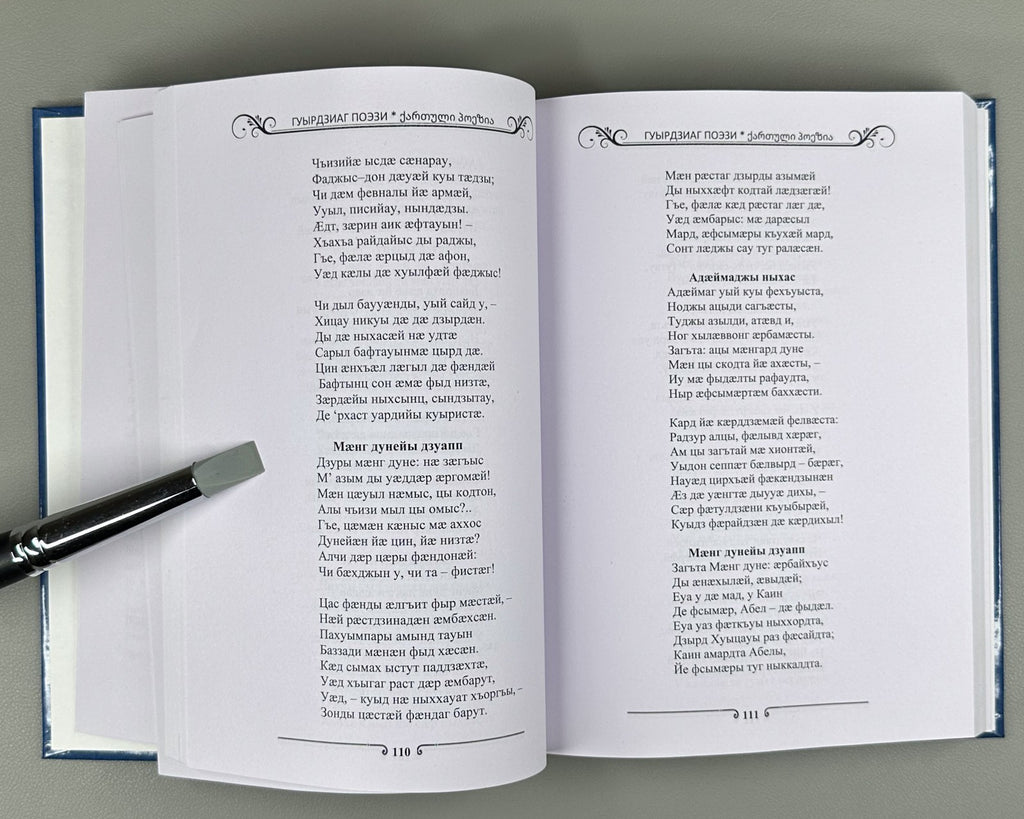 ГУЫРДЗИАГ ПОЭЗИ * ქართული პოეზია
Чъизийæ ысдæ сæнарау,
Фаджыс–дон дæуæй куы тæдзы;
Чи дæм февналы йæ армæй,
Ууыл, писийау, нындæдзы.
Æдт, зæрин аик æфтауын! –
Хъахъа райдайыс ды раджы,
Гъе, фæлæ æрцыд дæ афон,
Уæд кæлы дæ хуылфæй фæджыс!
Чи дыл баууæнды, уый сайд у, –
Хицау никуы дæ дæ дзырдæн.
Ды дæ ныхасæй нæ удтæ
Сарыл бафтауынмæ цырд дæ.
Цин æнхъæл лæгыл дæ фæндæй
Бафтынц сон æмæ фыд низтæ,
Зæрдæйы ныхсынц, сындзытау,
Де ‘рхаст уардийы куыристæ.
Мæнг дунейы дзуапп
Дзуры мæнг дуне: нæ зæгъыс
М’ азым ды уæддæр æргомæй!
Мæн цæуыл нæмыс, цы кодтон,
Алы чъизи мыл цы омыс?..
Гъе, цæмæн кæныс мæ аххос
Дунейæн йæ цин, йæ низтæ?
Алчи дæр цæры фæндонæй:
Чи бæхджын у, чи та – фистæг!
Цас фæнды æлгъит фыр мæстæй, –
Нæй рæстдзинадæн æмбæхсæн.
Пахуымпары амынд тауын
Баззади мæнæн фыд хæсæн.
Кæд сымах ыстут паддзæхтæ,
Уæд хъыгаг раст дæр æмбарут,
Уæд, – куыд нæ ныххауат хъоргъы, –
Зонды цæстæй фæндаг барут.
110
ГУЫРДЗИАГ ПОЭЗИ * ქართული პოეზია
Мæн рæстаг дзырды азымæй
Ды ныххæфт кодтай лæдзæгæй!
Гъе, фæлæ кæд рæстаг лæг дæ,
Уæд æмбарыс: мæ дарæсыл
Мард, æфсымæры къухæй мард,
Сонт лæджы сау туг ралæсæн.
Адæймаджы ныхас
Адæймаг уый куы фехъуыста,
Ноджы ацыди сагъæсты,
Туджы азылди, атæвд и,
Ног хылæввонг æрбамæсты.
Загъта: ацы мæнгард дуне
Мæн цы скодта йæ ахæсты, –
Иу мæ фыдæлты рафаудта,
Ныр æфсымæртæм баххæсти.
Кард йæ кæрддзæмæй фелвæста:
Радзур алцы, фæлывд хæрæг,
Ам цы загътай мæ хионтæй,
Уыдон сеппæт бæлвырд – бæрæг,
Науæд цирхъæй фæкæндзынæн
Æз дæ уæнгтæ дыууæ дихы, –
Сæр фæтулдзæни къуыбырæй,
Куыдз фæрайдзæн дæ кæрдихыл!
Мæнг дунейы дзуапп
Загъта Мæнг дуне: æрбайхъус
Ды æнæхылæй, æвыдæй;
Еуа у дæ мад, у Каин
Де фсымæр, Абел – дæ фыдæл.
Еуа уаз фæткъуы ныххордта,
Дзырд Хуыцауы раз фæсайдта;
Каин амардта Абелы,
Йе фсымæры туг ныккалдта.
111